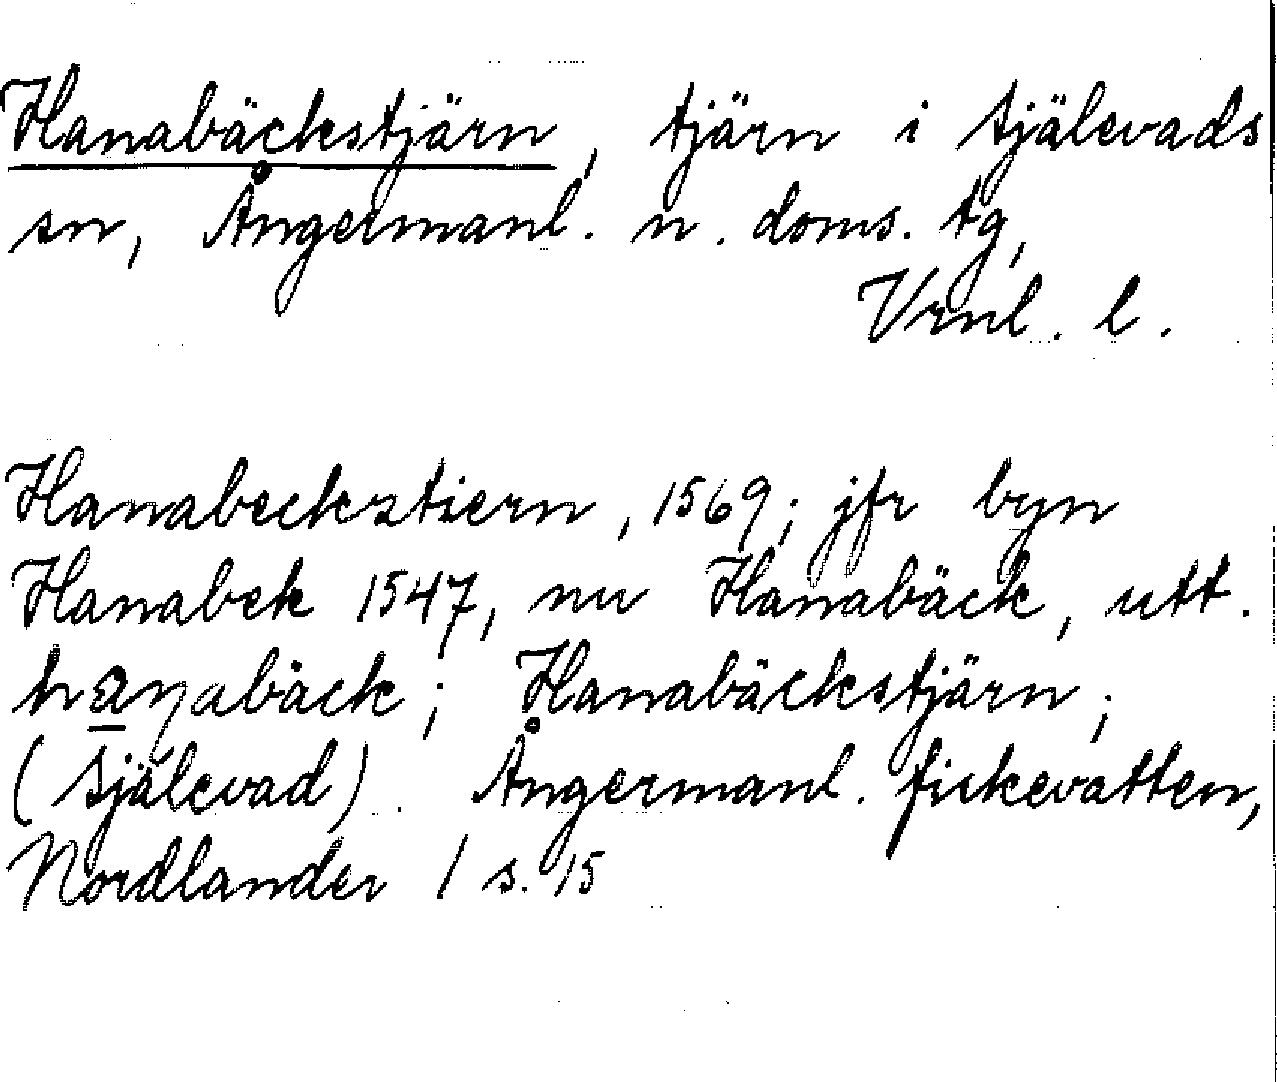 Hanabäckstjärn, tjärn i Själevads
sn, Ångermanl. n. doms. tg,
Vrnl. l.
Hanabeckztiern, 1569; jfr byn
Hanabek 1547, nu Hanabäck, utt.
haŋabäck; Hanabäckstjärn;
(Själevad). Ångermanl. fiskevatten,
Nordlander 1 s. 15